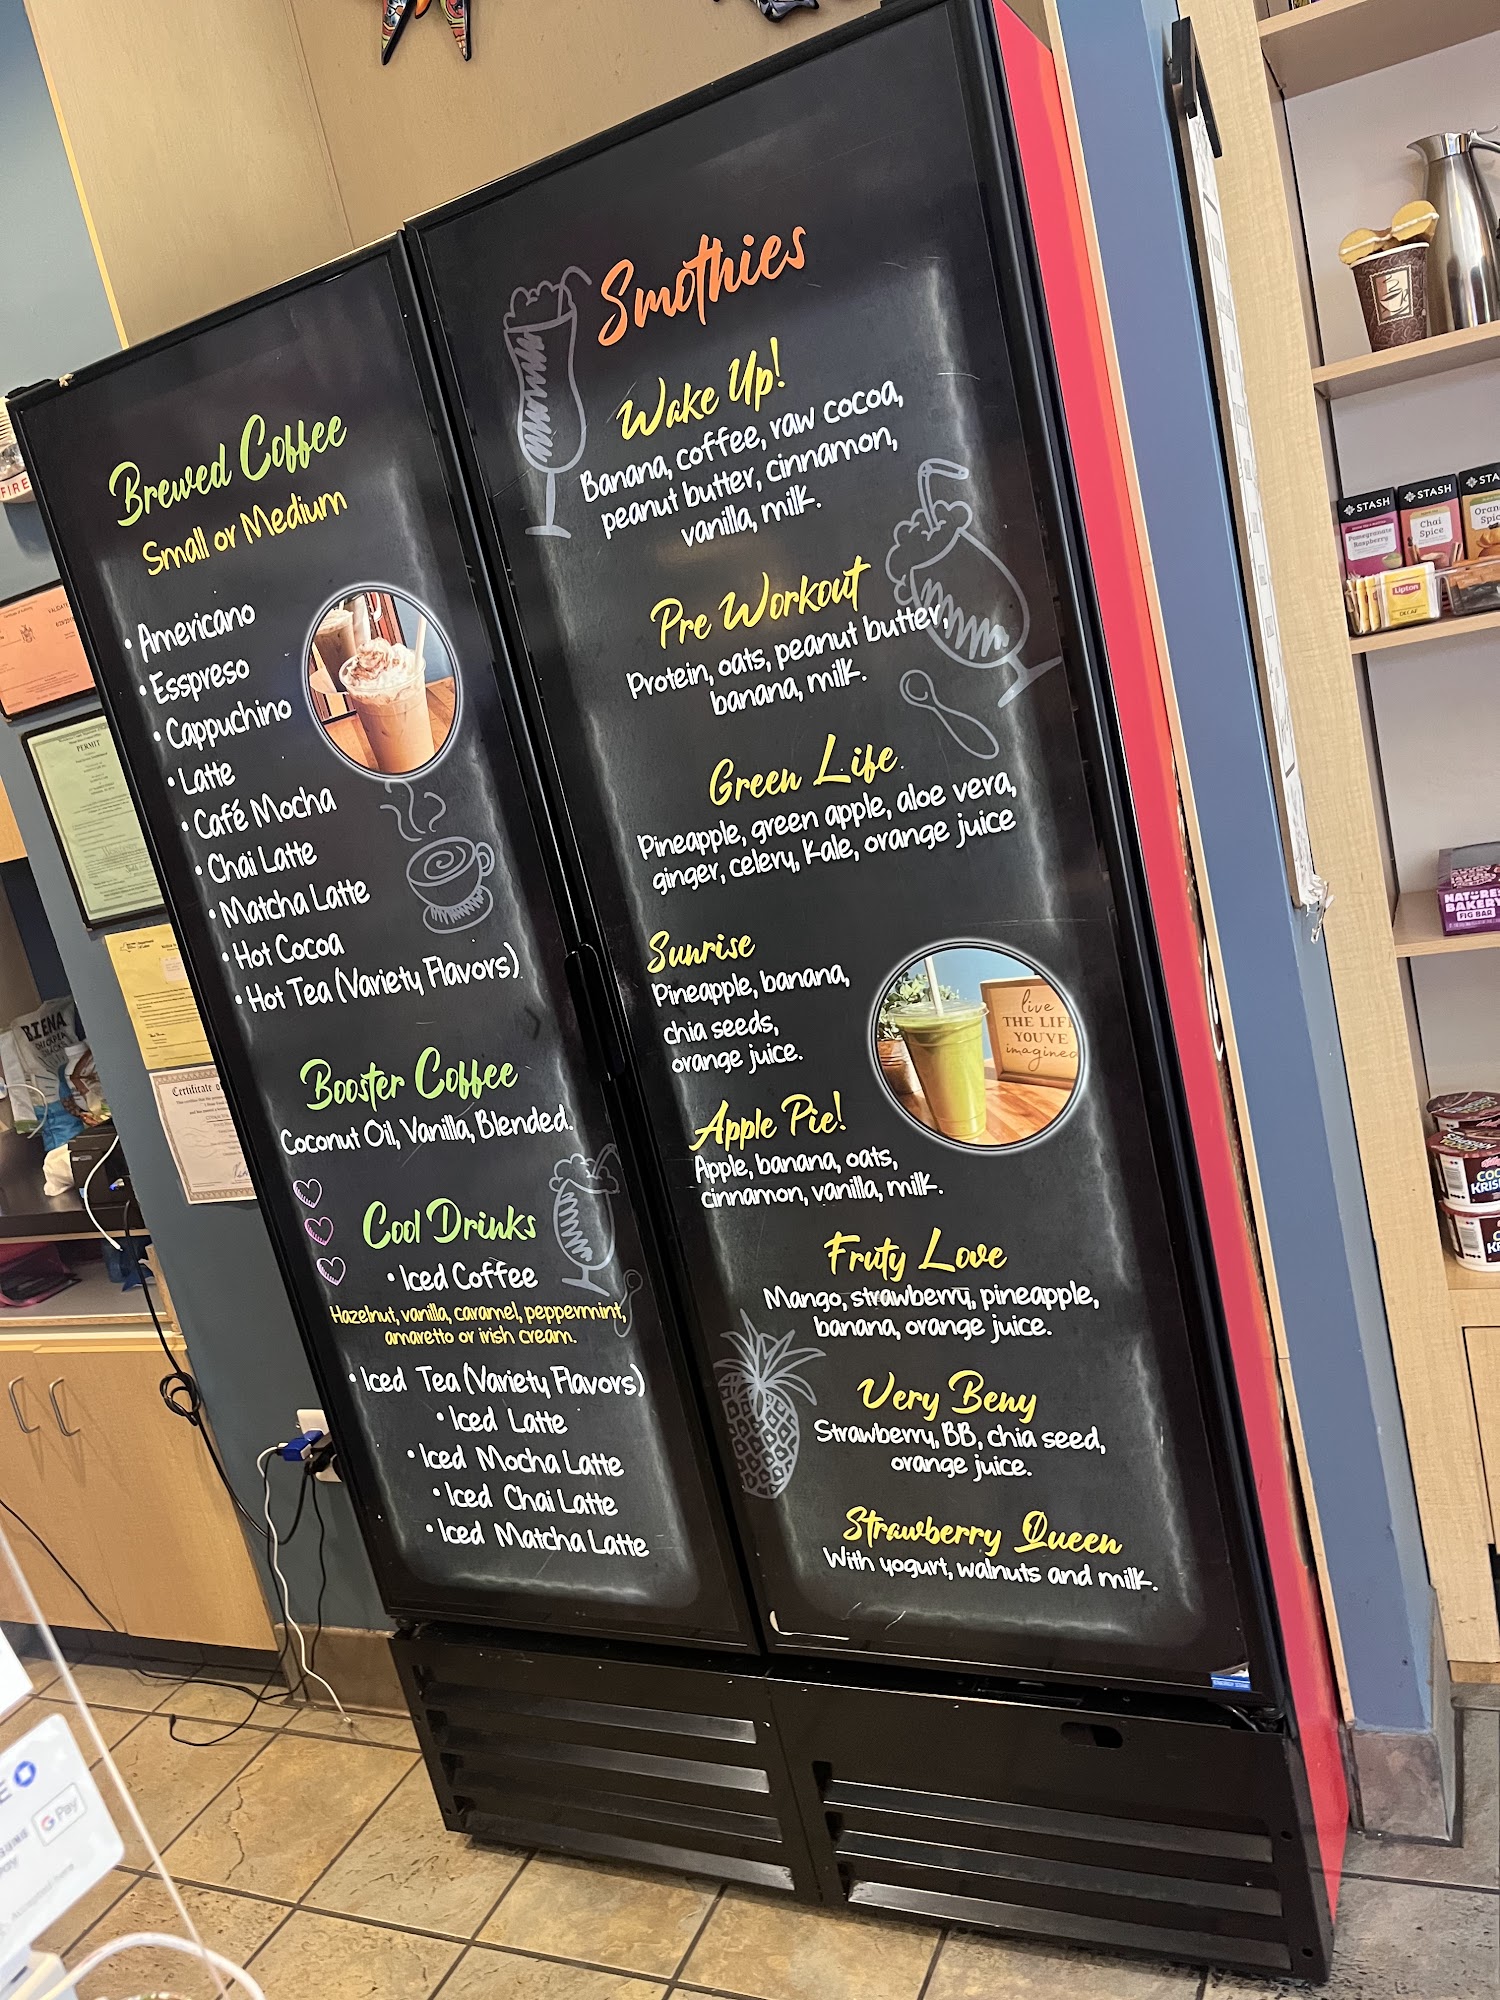 Brewed Coffee
Small or Medium
• Americano
• Esspreso
• Cappuchino
• Latte
• Café Mocha
• Chai Latte
• Matcha Latte
• Hot Cocoa
• Hot Tea (Variety Flavors)
Booster Coffee
Coconut Oil, Vanilla, Blended.
Cool Drinks
• Iced Coffee
Hazelnut, vanilla, caramel, peppermint,
amaretto or irish cream.
• Iced Tea (Variety Flavors)
• Iced Latte
• Iced Mocha Latte
• Iced Chai Latte
• Iced Matcha Latte
Smothies
Wake Up!
Banana, coffee, raw cocoa,
peanut butter, cinnamon,
vanilla, milk.
Pre Workout
Protein, oats, peanut butter,
banana, milk.
Green Life
Pineapple, green apple, aloe vera,
ginger, celery, kale, orange juice
Sunrise
Pineapple, banana,
chia seeds,
orange juice.
live
THE LIFE
YOU'VE
imagined
Apple Pie!
Apple, banana, oats,
cinnamon, vanilla, milk.
Fruty Love
Mango, strawberry, pineapple,
banana, orange juice.
Very Beny
Strawberry, BB, chia seed,
orange juice.
Strawberry Queen
With yogurt, walnuts and milk.
ENERGY STAR
FIRE
PERMIT
BIENA
Certificate o
G Pay
STASH
Pomegranate
Raspberry
STASH
Chai
Spice
STA
Oran
Spic
Lipton
DECAF
NATURE'S
BAKERY
FIG BAR
COC
KRIS